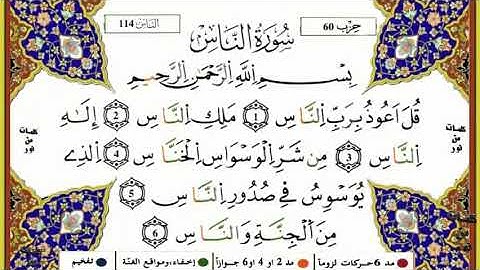 حزب 60
الناس 114
سُورَةُ النَّاسِ
بِسْمِ اللَّهِ الرَّحْمَٰنِ الرَّحِيمِ
قُلَ اَعُوذُ بِرَبِّ اِ۬لنَّاسِ 1 مَلِكِ اِ۬لنَّاسِ 2 إِلَٰهِ
اِ۬لنَّاسِ 3 مِن شَرِّ اِ۬لْوَسْوَاسِ اِ۬لْخَنَّاسِ 4 اَ۬لذِے
يُوَسْوِسُ فِے صُدُورِ اِ۬لنَّاسِ 5
مِنَ اَ۬لْجِنَّةِ وَالنَّاسِ 6
كلمات
من
نور
كلمات
من
نور
مد 6 حركات لزوماً مد 2 او 4 او 6 جوازاً إخفاء، ومواقع الغنّة تفخيم